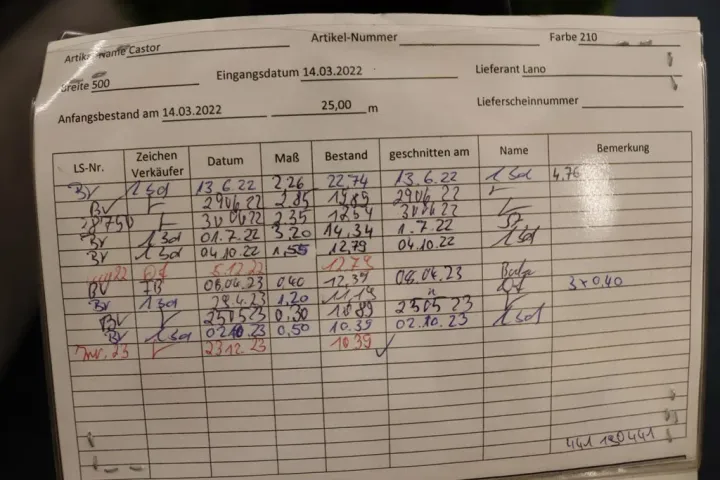 Artikel-Name Castor Artikel-Nummer Farbe 210
Breite 500 Eingangsdatum 14.03.2022 Lieferant Lano
Anfangsbestand am 14.03.2022 25,00 m Lieferscheinnummer
LS-Nr. Zeichen Verkäufer Datum Maß Bestand geschnitten am Name Bemerkung
BV 13.6.22 2,26 22,74 13.6.22 4,76
BV 29.06.22 2.85 19.89 29.06.22
30.06.22 2.35 17.54 30.06.22
BV 01.7.22 3,20 14.34 1.7.22
BV 04.10.22 1,55 12,79 04.10.22
5.12.22 12.79
BV 08.04.23 0,40 12,39 08.04.23 3x0,40
BV 29.4.23 1,20 11,19 "
BV 25.05.23 0.30 10.89 25.05.23
BV 02.10.23 0,50 10.39 02.10.23
Inv. 23 23.12.23 10.39 ✓
441 190441